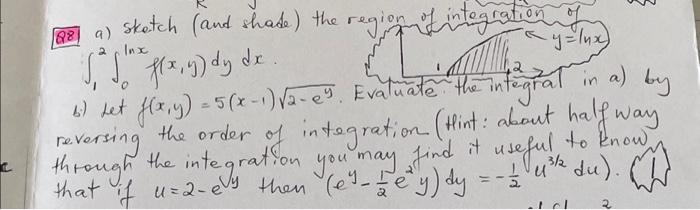 Q8 a) sketch (and shade) the region of integration of
∫₁² ∫₀^{ln x} f(x,y) dy dx.
y=lnx
1 2
b) Let f(x,y) = 5(x-1)√(2-e^y). Evaluate the integral in a) by
reversing the order of integration (Hint: about halfway
through the integration you may find it useful to know
that if u=2-e^y then (e^y - ½e^{2y}) dy = -½ u^{3/2} du).